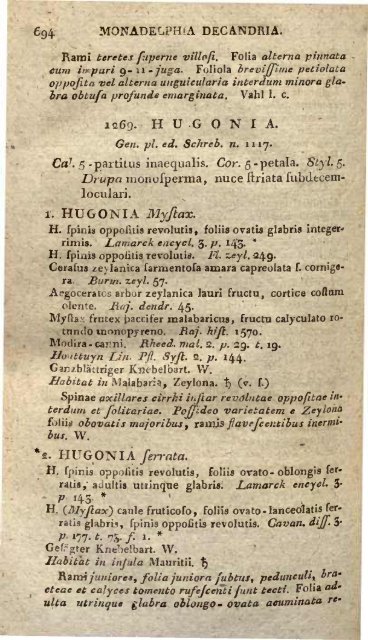 694 MONADELPHIA DECANDRIA.
Rami teretes superne villosi. Folia alterna pinnata
cum impari 9-11-juga. Foliola brevissime petiolata
opposita vel alterna unguicularia interdum minora gla-
bra obtusa profunde emarginata. Vahl l. c.
1269. HUGONIA.
Gen. pl. ed. Schreb. n. 1117.
Cal. 5-partitus inaequalis. Cor. 5-petala. Styl. 5.
Drupa monosperma, nuce striata subdecem-
loculari.
1. HUGONIA Mystax.
H. spinis oppositis revolutis, foliis ovatis glabris integer-
rimis. Lamarck encycl. 3. p. 143. *
H. spinis oppositis revolutis. Fl. zeyl. 249.
Cerasus zeylanica sarmentosa amara capreolata s. cornige-
ra. Burm. zeyl. 57.
Aegoceratos arbor zeylanica lauri fructu, cortice costam
olente. Raj. dendr. 45.
Mystax frutex baccifer malabaricus, fructu calyculato ro-
tundo monopyreno. Raj. hist. 1570.
Modira-canni. Rheed. mal. 2. p. 29. t. 19.
Houttuyn Lin. Pfl. Syst. 2. p. 144.
Ganzblättriger Knebelbart. W.
Habitat in Malabaria, Zeylona. ♄ (v. s.)
Spinae axillares cirrhi instar revolutae oppositae in-
terdum et solitariae. Possideo varietatem e Zeylona
foliis obovatis majoribus, ramis flavescentibus inermi-
bus. W.
*2. HUGONIA serrata.
H. spinis oppositis revolutis, foliis ovato-oblongis ser-
ratis, adultis utrinque glabris. Lamarck encycl. 3.
p. 143. *
H. (Mystax) caule fruticoso, foliis ovato-lanceolatis ser-
ratis glabris, spinis oppositis revolutis. Cavan. diss. 3.
p. 177. t. 73. f. 1. *
Gesägter Knebelbart. W.
Habitat in insula Mauritii. ♄
Rami juniores, folia juniora subtus, pedunculi, bra-
cteae et calyces tomento rufescenti sunt tecti. Folia ad-
ulta utrinque glabra oblongo-ovata acuminata re-